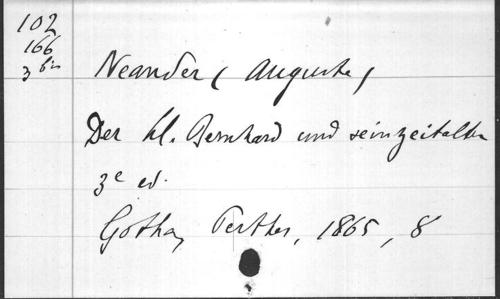 102
166
3 bis
Neander (Auguste)
Der hl. Bernhard und seinzeitalter
3e ed.
Gotha, Perthes, 1865, 8